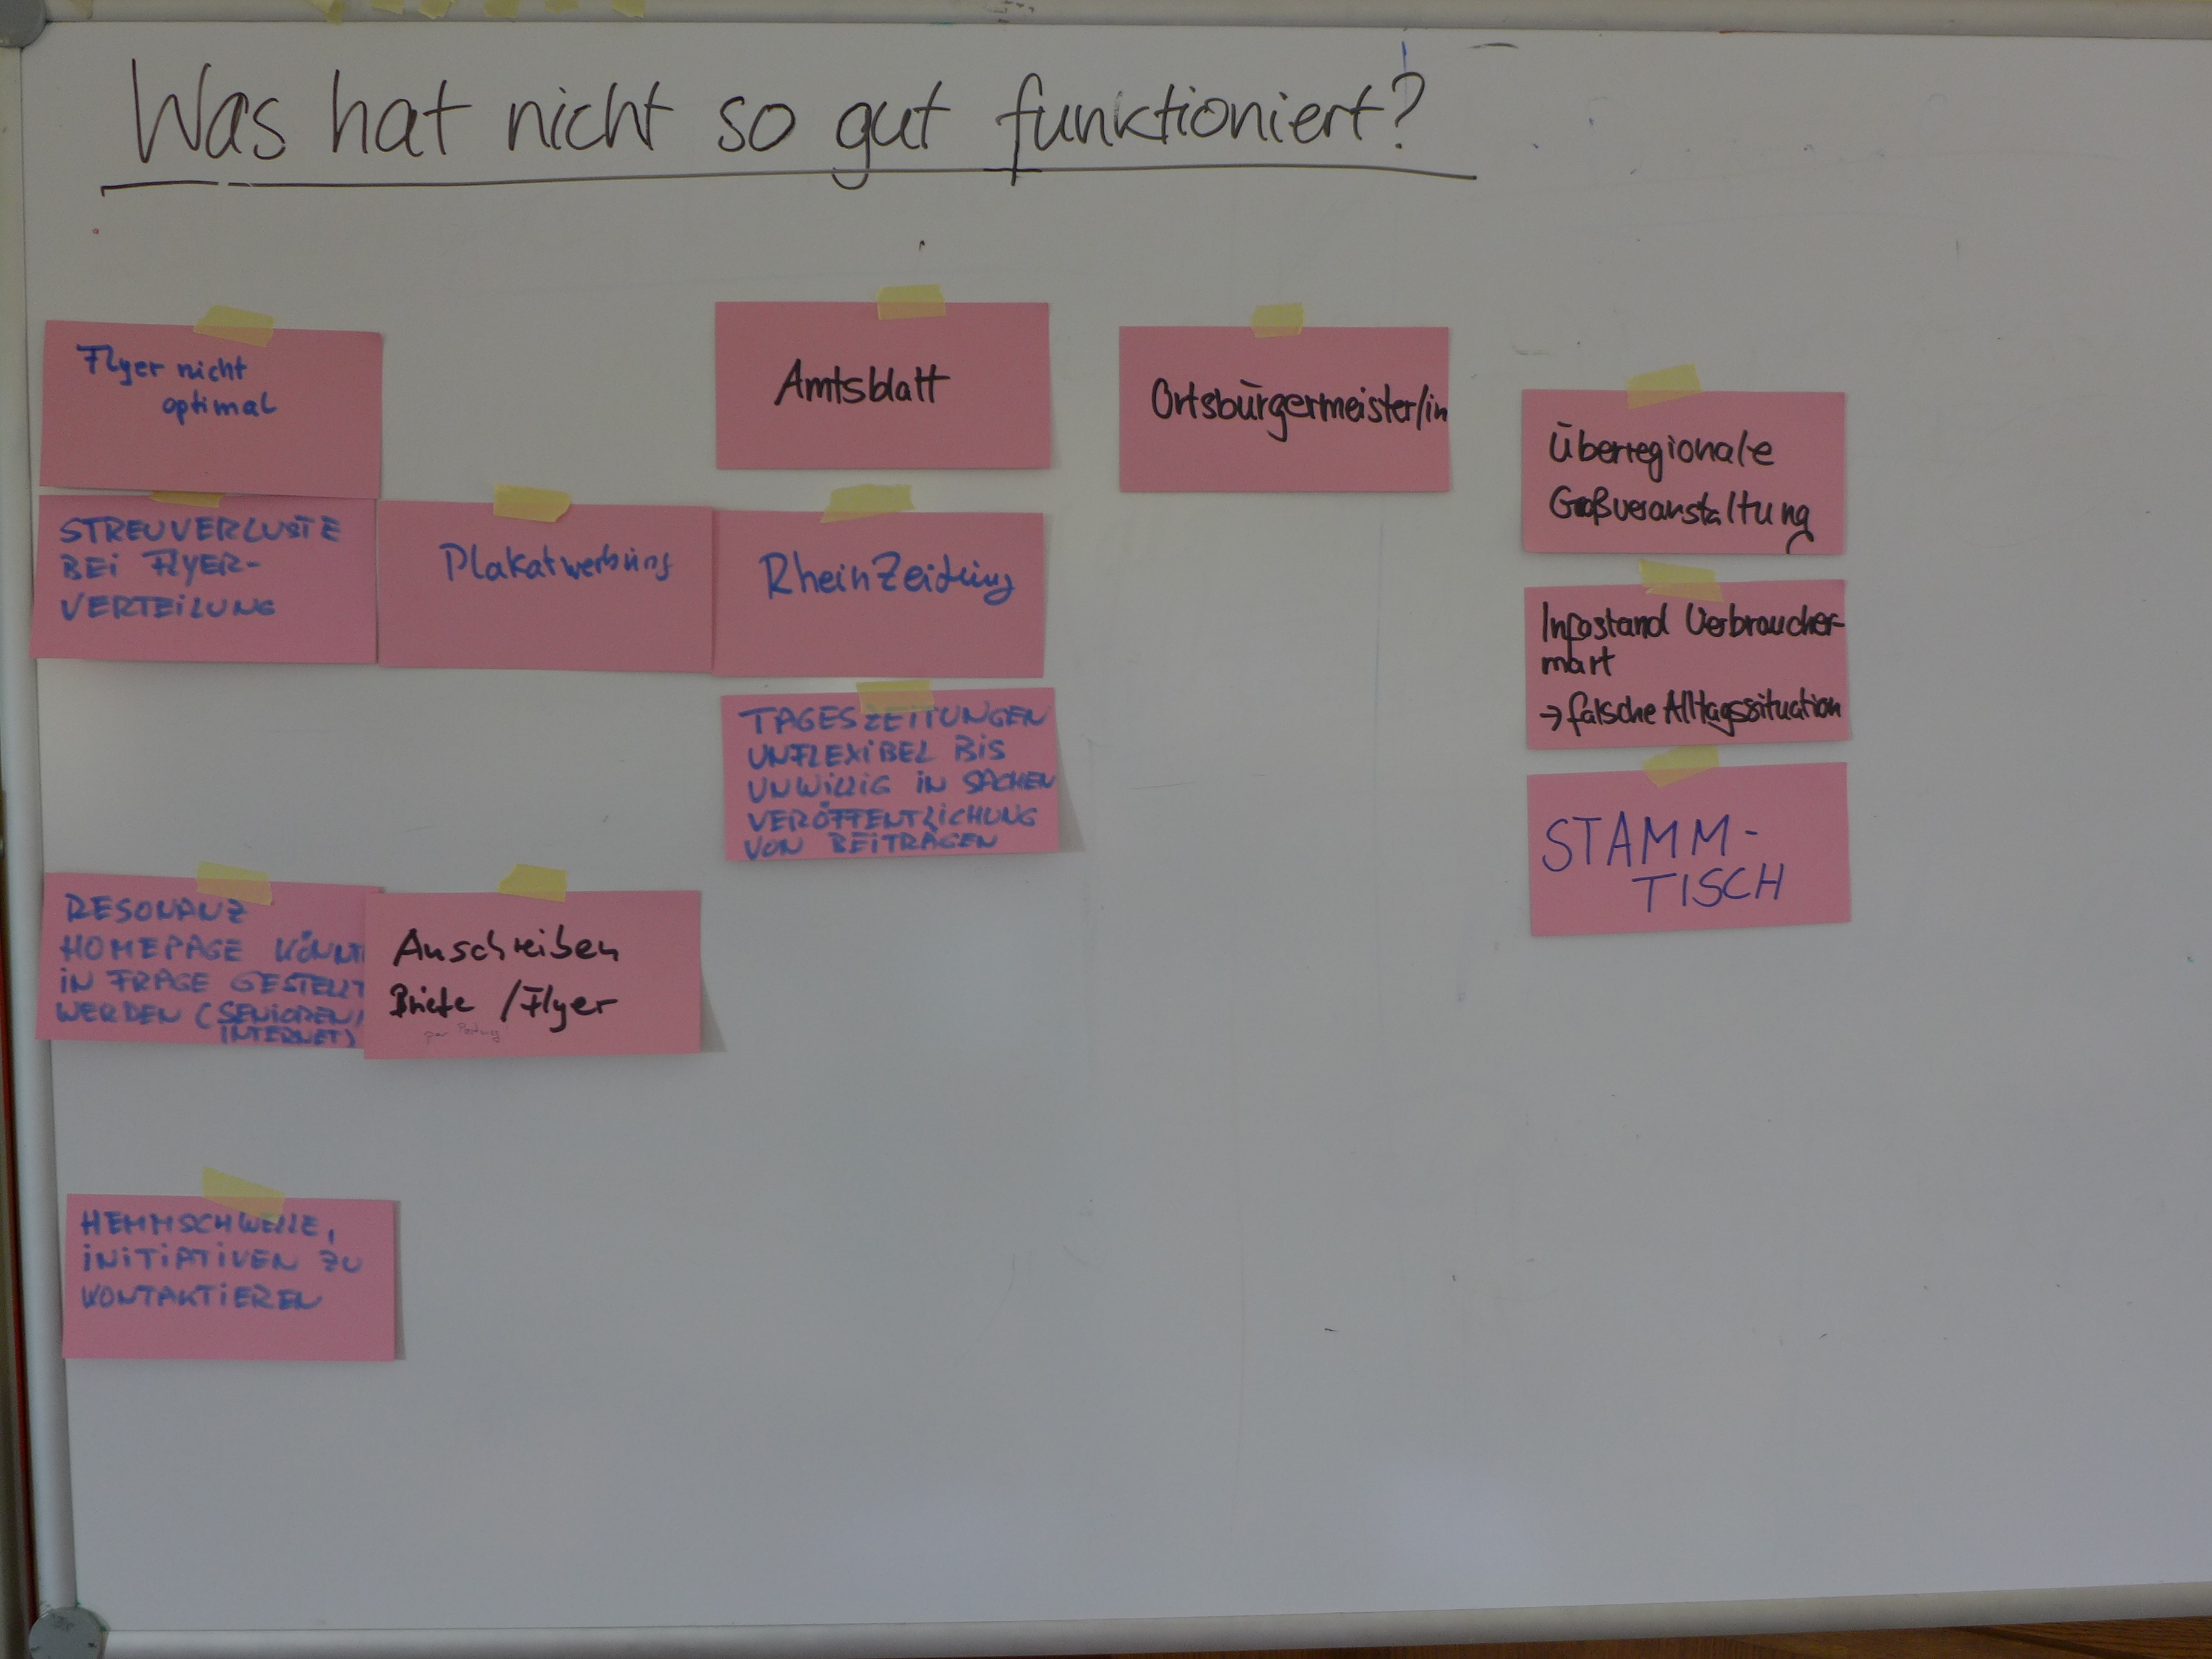 Was hat nicht so gut funktioniert?
Flyer nicht
optimal
STREUVERLUSTE
BEI FLYER-
VERTEILUNG
Plakatwerbung
Amtsblatt
RheinZeitung
TAGESZEITUNGEN
UNFLEXIBEL BIS
UNWILLIG IN SACHEN
VERÖFFENTLICHUNG
VON BEITRÄGEN
Ortsbürgermeister/in
Überregionale
Großveranstaltung
Infostand Verbraucher-
mart
→ falsche Alltagssituation
STAMM-
TISCH
RESONANZ
HOMEPAGE KÖNNT
IN FRAGE GESTELLT
WERDEN (SENIOREN/
INTERNET)
Anschreiben
Briefe / Flyer
per
HEMMSCHWELLE,
INITIATIVEN ZU
KONTAKTIEREN